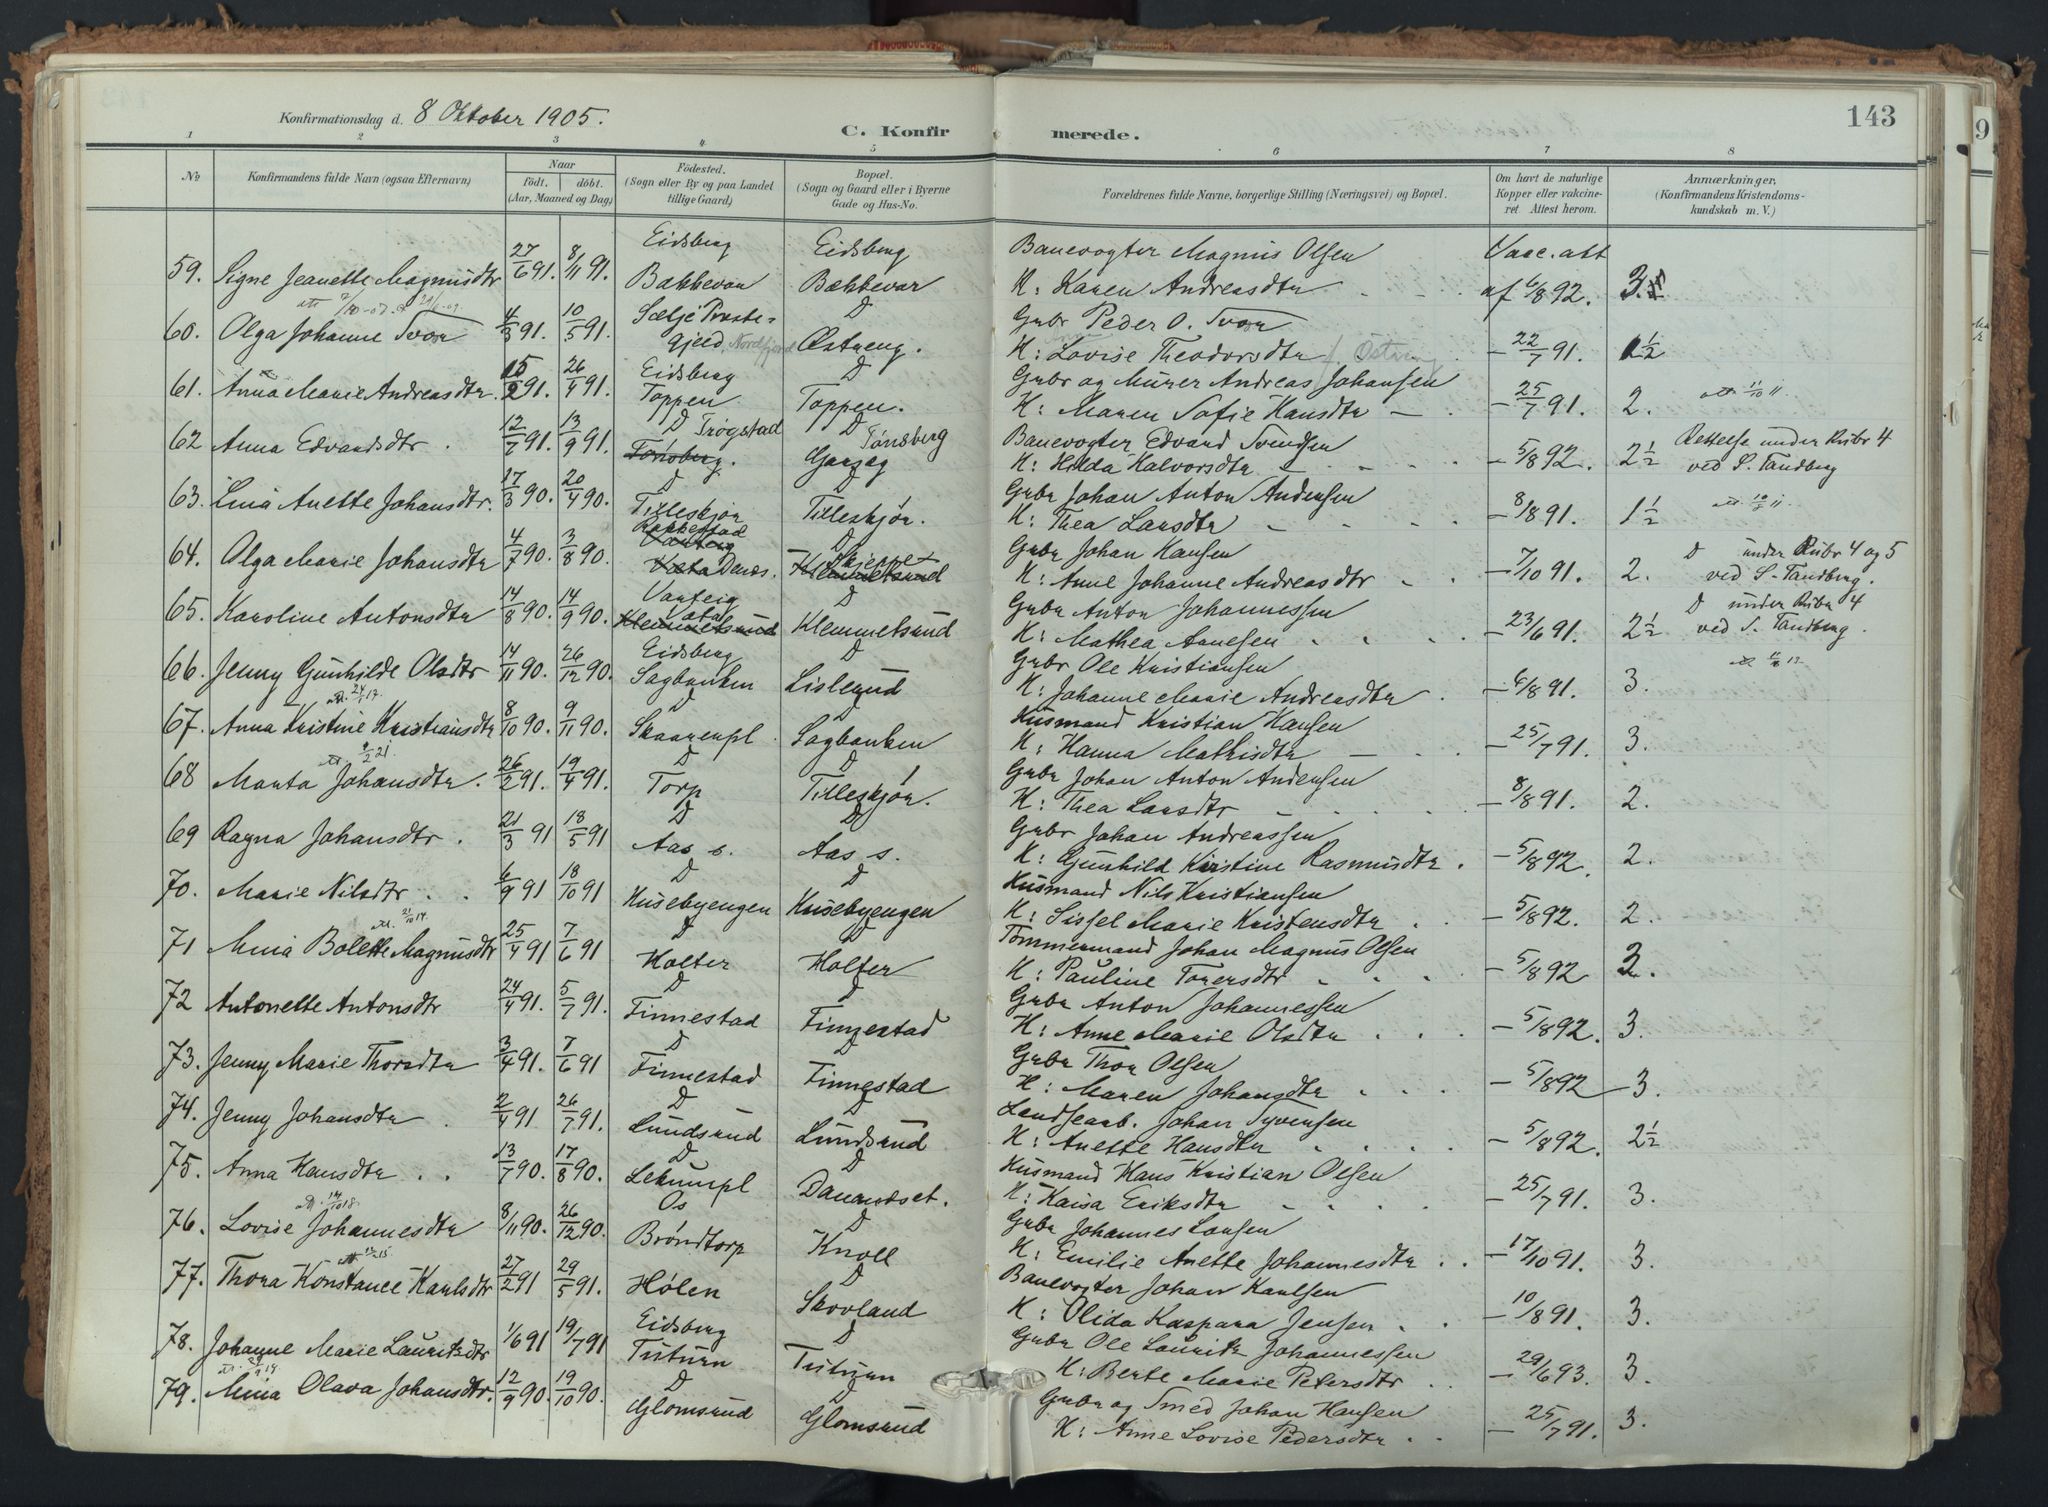 143
Konfirmationsdag d. 8 Oktober 1905.
C. Konfir merede.
1 2 3 4 5 6 7 8
№ Konfirmandens fulde Navn (ogsaa Efternavn) Naar födt. döbt. (Aar, Maaned og Dag) Födested. (Sogn eller By og paa Landet tillige Gaard) Bopæl. (Sogn og Gaard eller i Byerne Gade og Hus-No. Forældrenes fulde Navne, borgerlige Stilling (Næringsvei) og Bopæl. Om havt de naturlige Kopper eller vakcineret Attest herom. Anmærkninger, (Konfirmandens Kristendomskundskab m. V.)
Eidsberg Eidsberg Banevogter Magnus Olsen Vacc. att
59. Signe Jeanette Magnusdtr 27/6 91. 8/11 91. Bakkevar Bakkevar H: Karen Andreasdtr af 6/8 92. 3.
Selje Præste- D Gubr Peder O. Svor
60. Olga Johanne Svor 4/3 91. 10/5 91. gjeld, Nordfjord Østreng. H: Lovise Theodorsdtr — 22/7 91. 1 1/2
Eidsberg D Gubr og Murer Andreas Johansen
61. Anna Marie Andreasdtr. 15/2 91. 26/4 91. Toppen Toppen. H: Maren Sofie Hansdtr — 25/7 91. 2.
D Trøgstad D Tønsberg Banevogter Edvard Svendsen Rettelse under Rubr 4
62 Anna Edvardsdtr. 12/7 91. 13/9 91. Tønsberg. H: Hilda Halvorsdtr — 5/8 92. 2 1/2 ved S. Tandberg
D D Gubr Johan Anton Andersen
63. Lina Anette Johansdtr. 17/3 90. 20/4 90. Tilleskjør Tilleskjør. H: Thea Larsdtr — 8/8 91. 1 1/2
Rakkestad D Gubr Johan Hansen D under Rubr 4 og 5
64. Olga Marie Johansdtr 4/7 90. 3/8 90. Klemmetsrud H: Anne Johanne Andreasdtr — 7/10 91. 2. ved S. Tandberg.
Varteig D Gubr Anton Johannessen D under Rubr 4
65. Karoline Antonsdtr 14/8 90. 14/9 90. Klemmetsrud Klemmetsrud H: Mathea Arnesen — 23/6 91. 2 1/2 ved S. Tandberg
Eidsberg D Gubr Ole Kristiansen
66. Jenny Gunhilde Olsdtr 14/11 90. 26/12 90. Sagbanken Lislerud H: Johanne Marie Andreasdtr — 6/8 91. 3.
D D Husmand Kristian Hansen
67. Anna Kristine Kristiansdtr 8/10 90. 9/11 90. Skaarenpl. Sagbanken H: Hanna Mathisdtr — 25/7 91. 3.
D D Gubr Johan Anton Andersen
68 Marta Johansdtr. 26/2 91. 19/4 91. Torp Tilleskjør. H: Thea Larsdtr — 8/8 91. 2.
D D Gubr Johan Andreassen
69 Ragna Johansdtr. 21/3 91 18/5 91 Aas s. Aas s. H: Gunhild Kristine Rasmusdtr. — 5/8 92. 2.
D D Husmand Nils Kristiansen
70. Marie Nilsdtr 6/9 91 18/10 91 Husebyengen Husebyengen H: Sissel Marie Kristensdtr — 5/8 92. 2.
D D Tømmermand Johan Magnus Olsen
71 Mina Bolette Magnusdtr 25/4 91 7/6 91 Holter Holter H: Pauline Torersdtr — 5/8 92
D D Gubr Anton Johannessen
72 Antonette Antonsdtr 24/4 91. 5/7 91. Finnestad Finnestad H: Anne Marie Olsdtr — 5/8 92. 3.
D D Gubr Thor Olsen
73. Jenny Marie Thorsdtr 3/4 91. 7/6 91 Finnestad Finnestad H: Maren Johansdtr — 5/8 92 3.
D D Landhearb. Johan Syversen
74. Jenny Johansdtr 2/4 91 26/7 91. Lundsrud Lundsrud H: Anette Hansdtr — 5/8 92. 2 1/2
D D Husmand Hans Kristian Olsen
75. Anna Hansdtr 13/7 90. 17/8 90. Lekumpl H: Kaisa Eriksdtr — 25/7 91. 3.
Os D Gubr Johannes Larsen
76. Lovise Johannesdtr 8/11 90. 26/12 90. Brøndtorp Knoll H: Emilie Anette Johannesdtr — 17/10 91. 3.
D Banevogter Johan Karlsen
77. Thora Konstance Karlsdtr 27/2 91 29/5 91. Hølen Skovland H: Olida Kaspara Jensen — 10/8 91. 3.
Eidsberg D Gubr Ole Lauritz Johannessen
78. Johanne Marie Lauritzdtr 1/6 91 19/7 91 Tuturn Tuturn H: Berte Marie Petersdtr — 29/6 93. 3.
D D Gubr og Smed Johan Hansen
79. Mina Olava Johansdtr. 12/9 90. 19/10 90. Glomsrud Glomsrud H: Anne Lovise Pedersdtr — 25/7 91. 3.